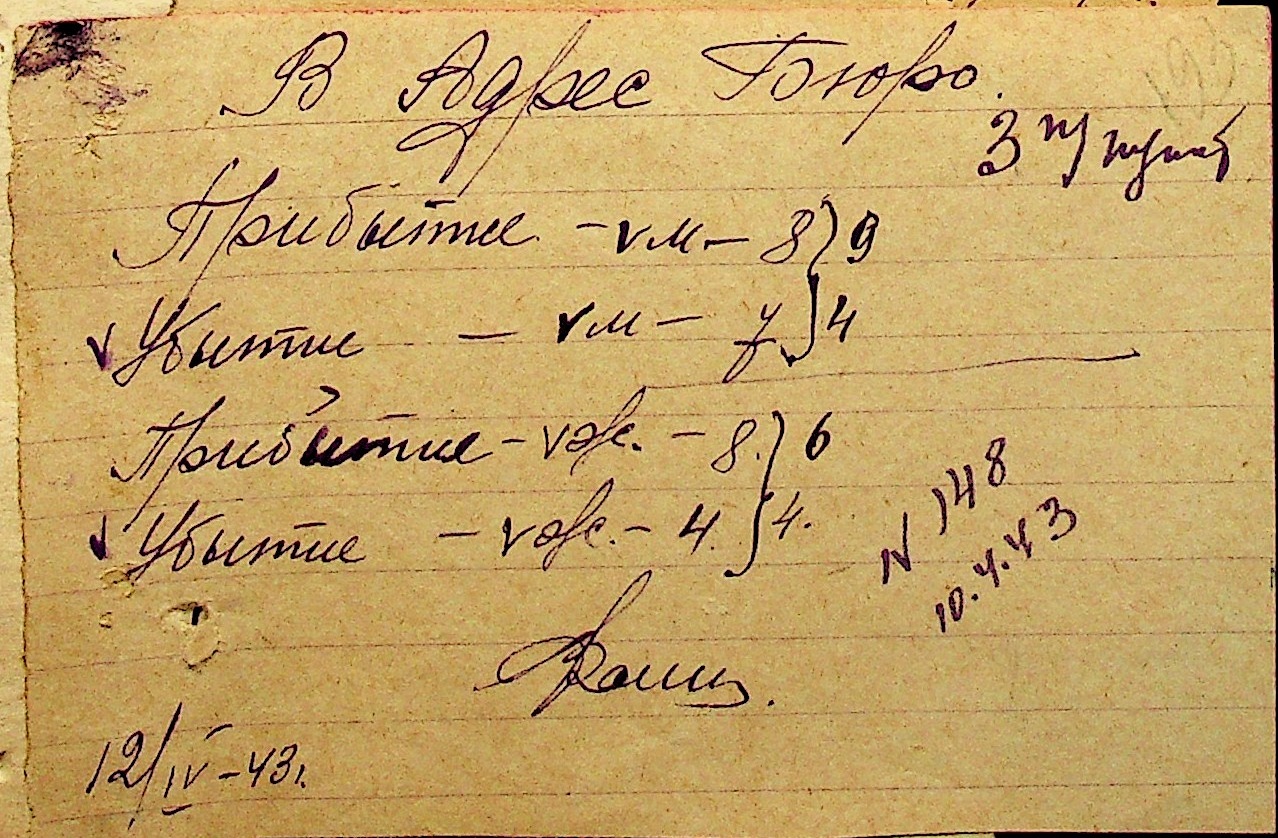 193
В Адрес Бюро.
3 п/пункт
Прибытие - v м - 8 } 9
v Убытие - v м - 7 } 4
Прибытие - v ж. - 8. } 6
v Убытие - v ж. - 4. } 4.
N 148
10.4.43
12/IV-43г.